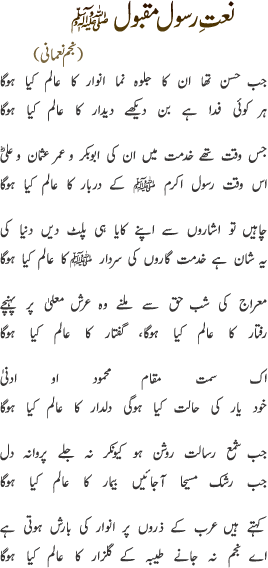 نعتِ رسولِ مقبول ﷺ
(نجم نعمانی)
جب حسن تھا ان کا جلوہ نما انوار کا عالم کیا ہوگا
ہر کوئی فدا ہے بن دیکھے دیدار کا عالم کیا ہوگا
جس وقت تھے خدمت میں ان کی ابوبکر و عمر عثمان و علیؓ
اس وقت رسول اکرم ﷺ کے دربار کا عالم کیا ہوگا
چاہیں تو اشاروں سے اپنے کایا ہی پلٹ دیں دنیا کی
یہ شان ہے خدمت گاروں کی سردار ﷺ کا عالم کیا ہوگا
معراج کی شب حق سے ملنے وہ عرش معلیٰ پر پہنچے
رفتار کا عالم کیا ہوگا، گفتار کا عالم کیا ہوگا
اک سمت مقام محمود او ادنیٰ
خود یار کی حالت کیا ہوگی دلدار کا عالم کیا ہوگا
جب شمع رسالت روشن ہو کیونکر نہ جلے پروانہ دل
جب رشک مسیحا آجائیں بیمار کا عالم کیا ہوگا
کہتے ہیں عرب کے ذروں پر انوار کی بارش ہوتی ہے
اے نجم نہ جانے طیبہ کے گلزار کا عالم کیا ہوگا